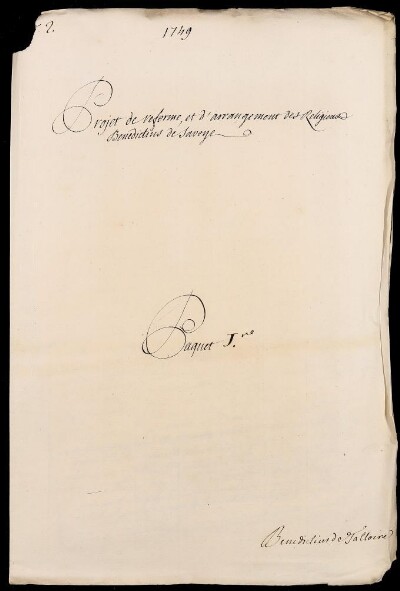 2.
1749
Projet de reforme, et d'arrangement des Religieux
Benedictins de Savoye
Paquet J.ro
Benedictins de Talloire